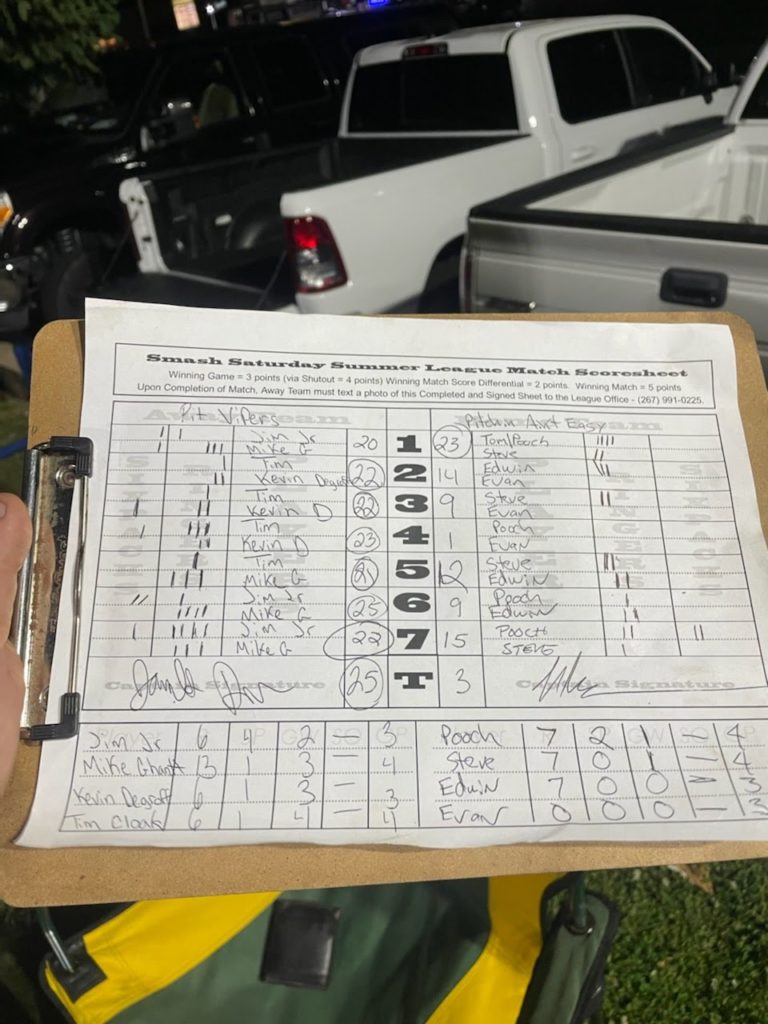 Smash Saturday Summer League Match Scoresheet
Winning Game = 3 points (via Shutout = 4 points) Winning Match Score Differential = 2 points. Winning Match = 5 points
Upon Completion of Match, Away Team must text a photo of this Completed and Signed Sheet to the League Office - (267) 991-0225.
Pit Vipers Pitchin Ain't Easy
Jim Jr 20 1 23 Tom/Pooch
Mike G Steve
Tim 22 2 14 Edwin
Kevin Degroff Evan
Tim 22 3 9 Steve
Kevin D Evan
Tim 23 4 1 Pooch
Kevin D Evan
Tim 21 5 12 Steve
Mike G Edwin
Jim Jr 25 6 9 Pooch
Mike G Edwin
Jim Jr 22 7 15 Pooch
Mike G STEVE
25 T 3
Captain Signature Captain Signature
Jim Jr 6 4 2 — 3 Pooch 7 2 1 — 4
Mike 13 1 3 — 4 Steve 7 0 1 — 4
Kevin Degroff 6 1 3 — 3 Edwin 7 0 0 — 3
Tim 6 1 4 — 4 Evan 0 0 0 — 3